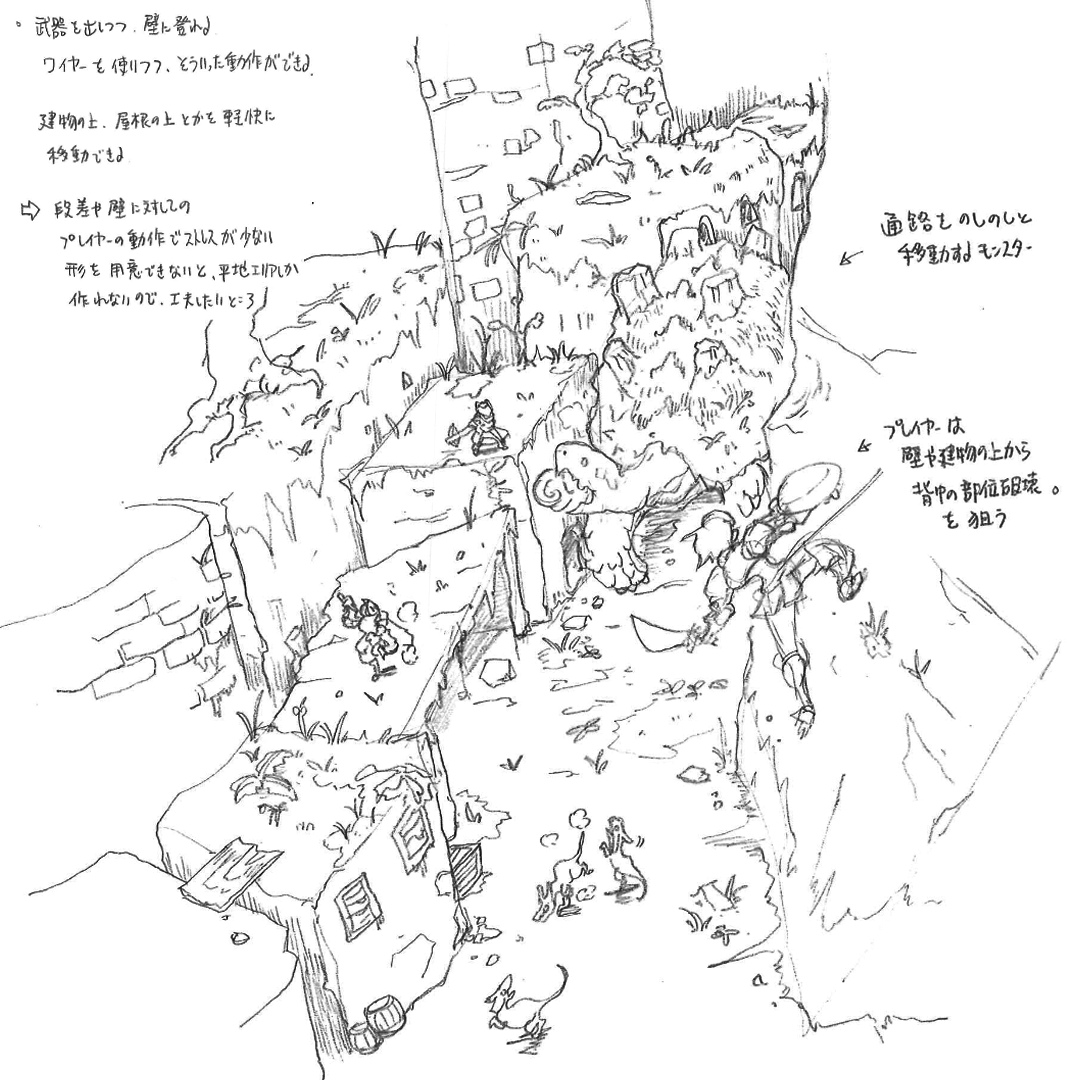 。武器を出しつつ、壁に登れる
ワイヤーを使いつつ、そういった動作ができる。
建物の上、屋根の上とかを軽快に
移動できる
⇨ 段差や壁に対しての
プレイヤーの動作でストレスが少ない
形を用意できないと、平地エリアしか
作れないので、工夫したいところ
通路をのしのしと
移動するモンスター
プレイヤーは
壁や建物の上から
背中の部位破壊。
を狙う